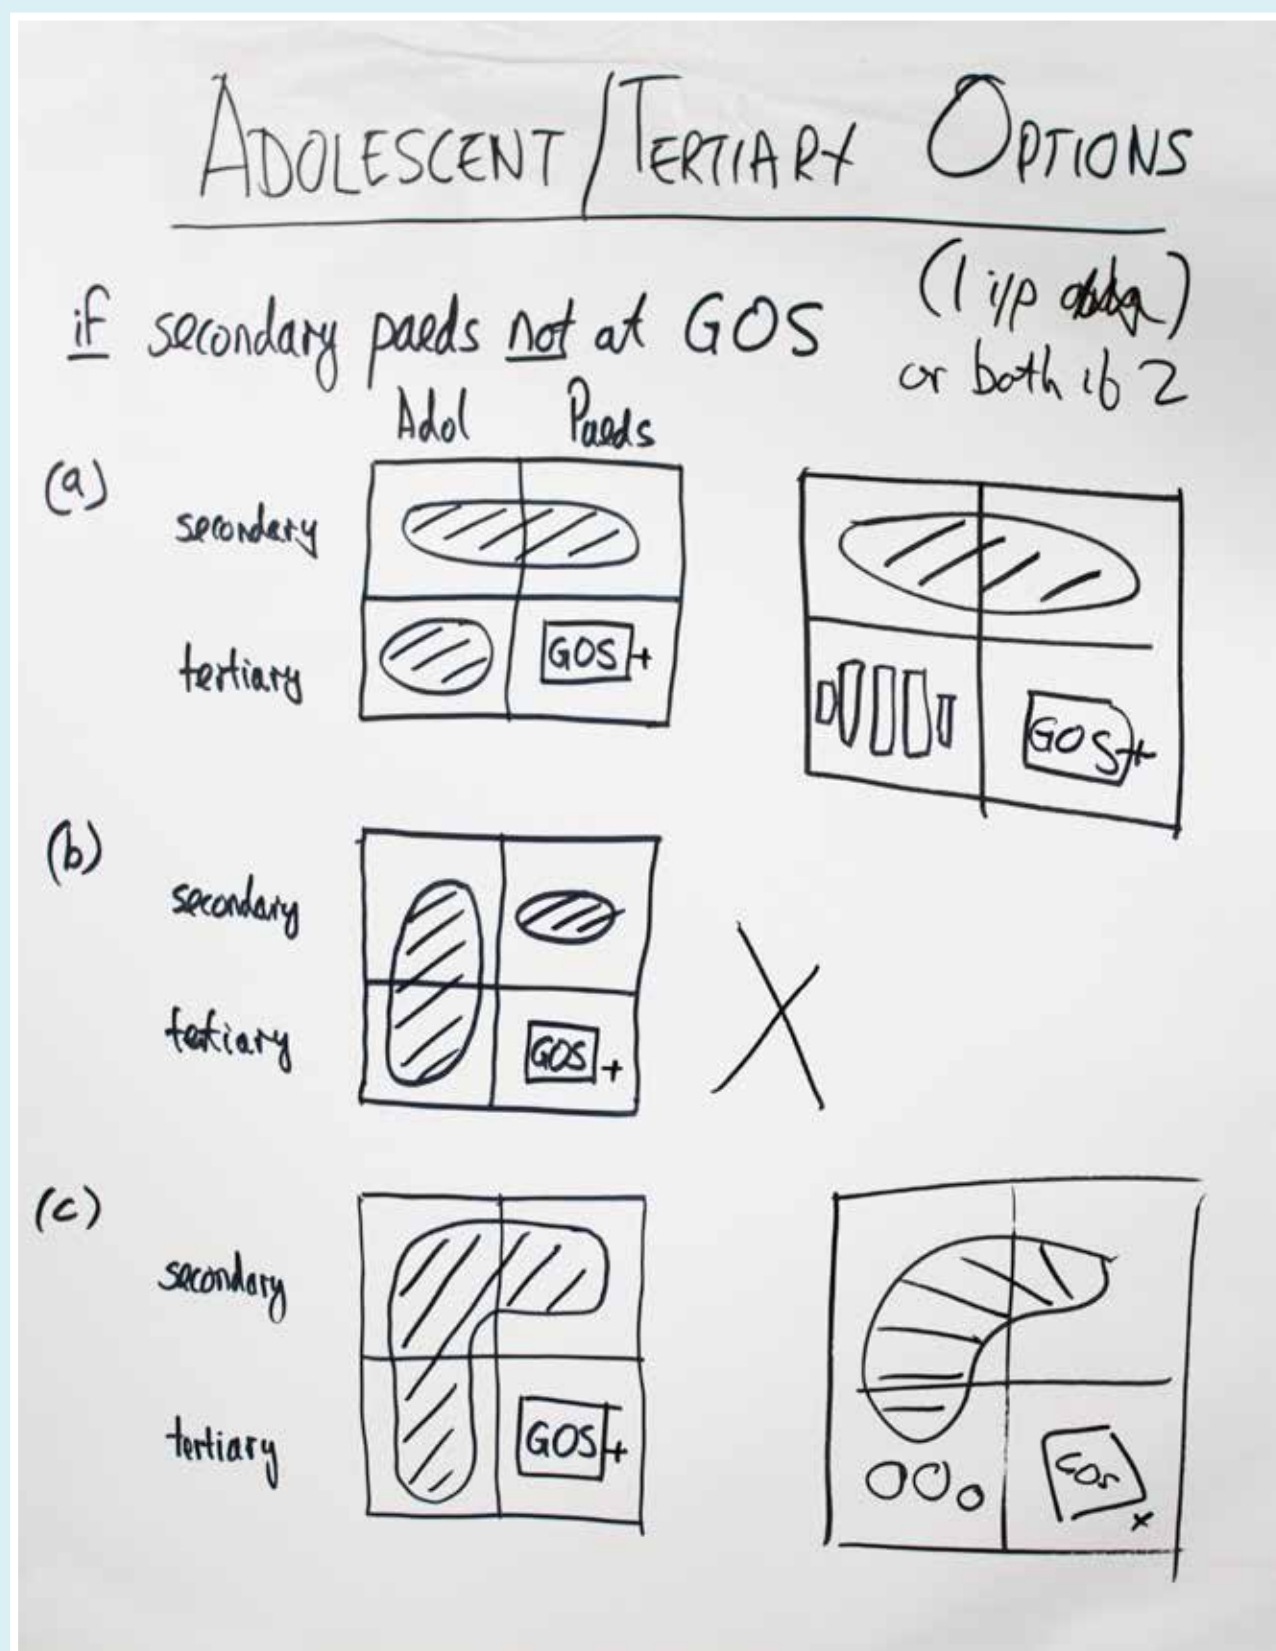 ADOLESCENT/TERTIARY OPTIONS
(1 i/p
if secondary paeds not at GOS
or both if 2
Adol Paeds
(a)
secondary
tertiary GOS+ GOS+
(b)
secondary
tertiary GOS+
(c)
secondary
tertiary GOS+ GOS+